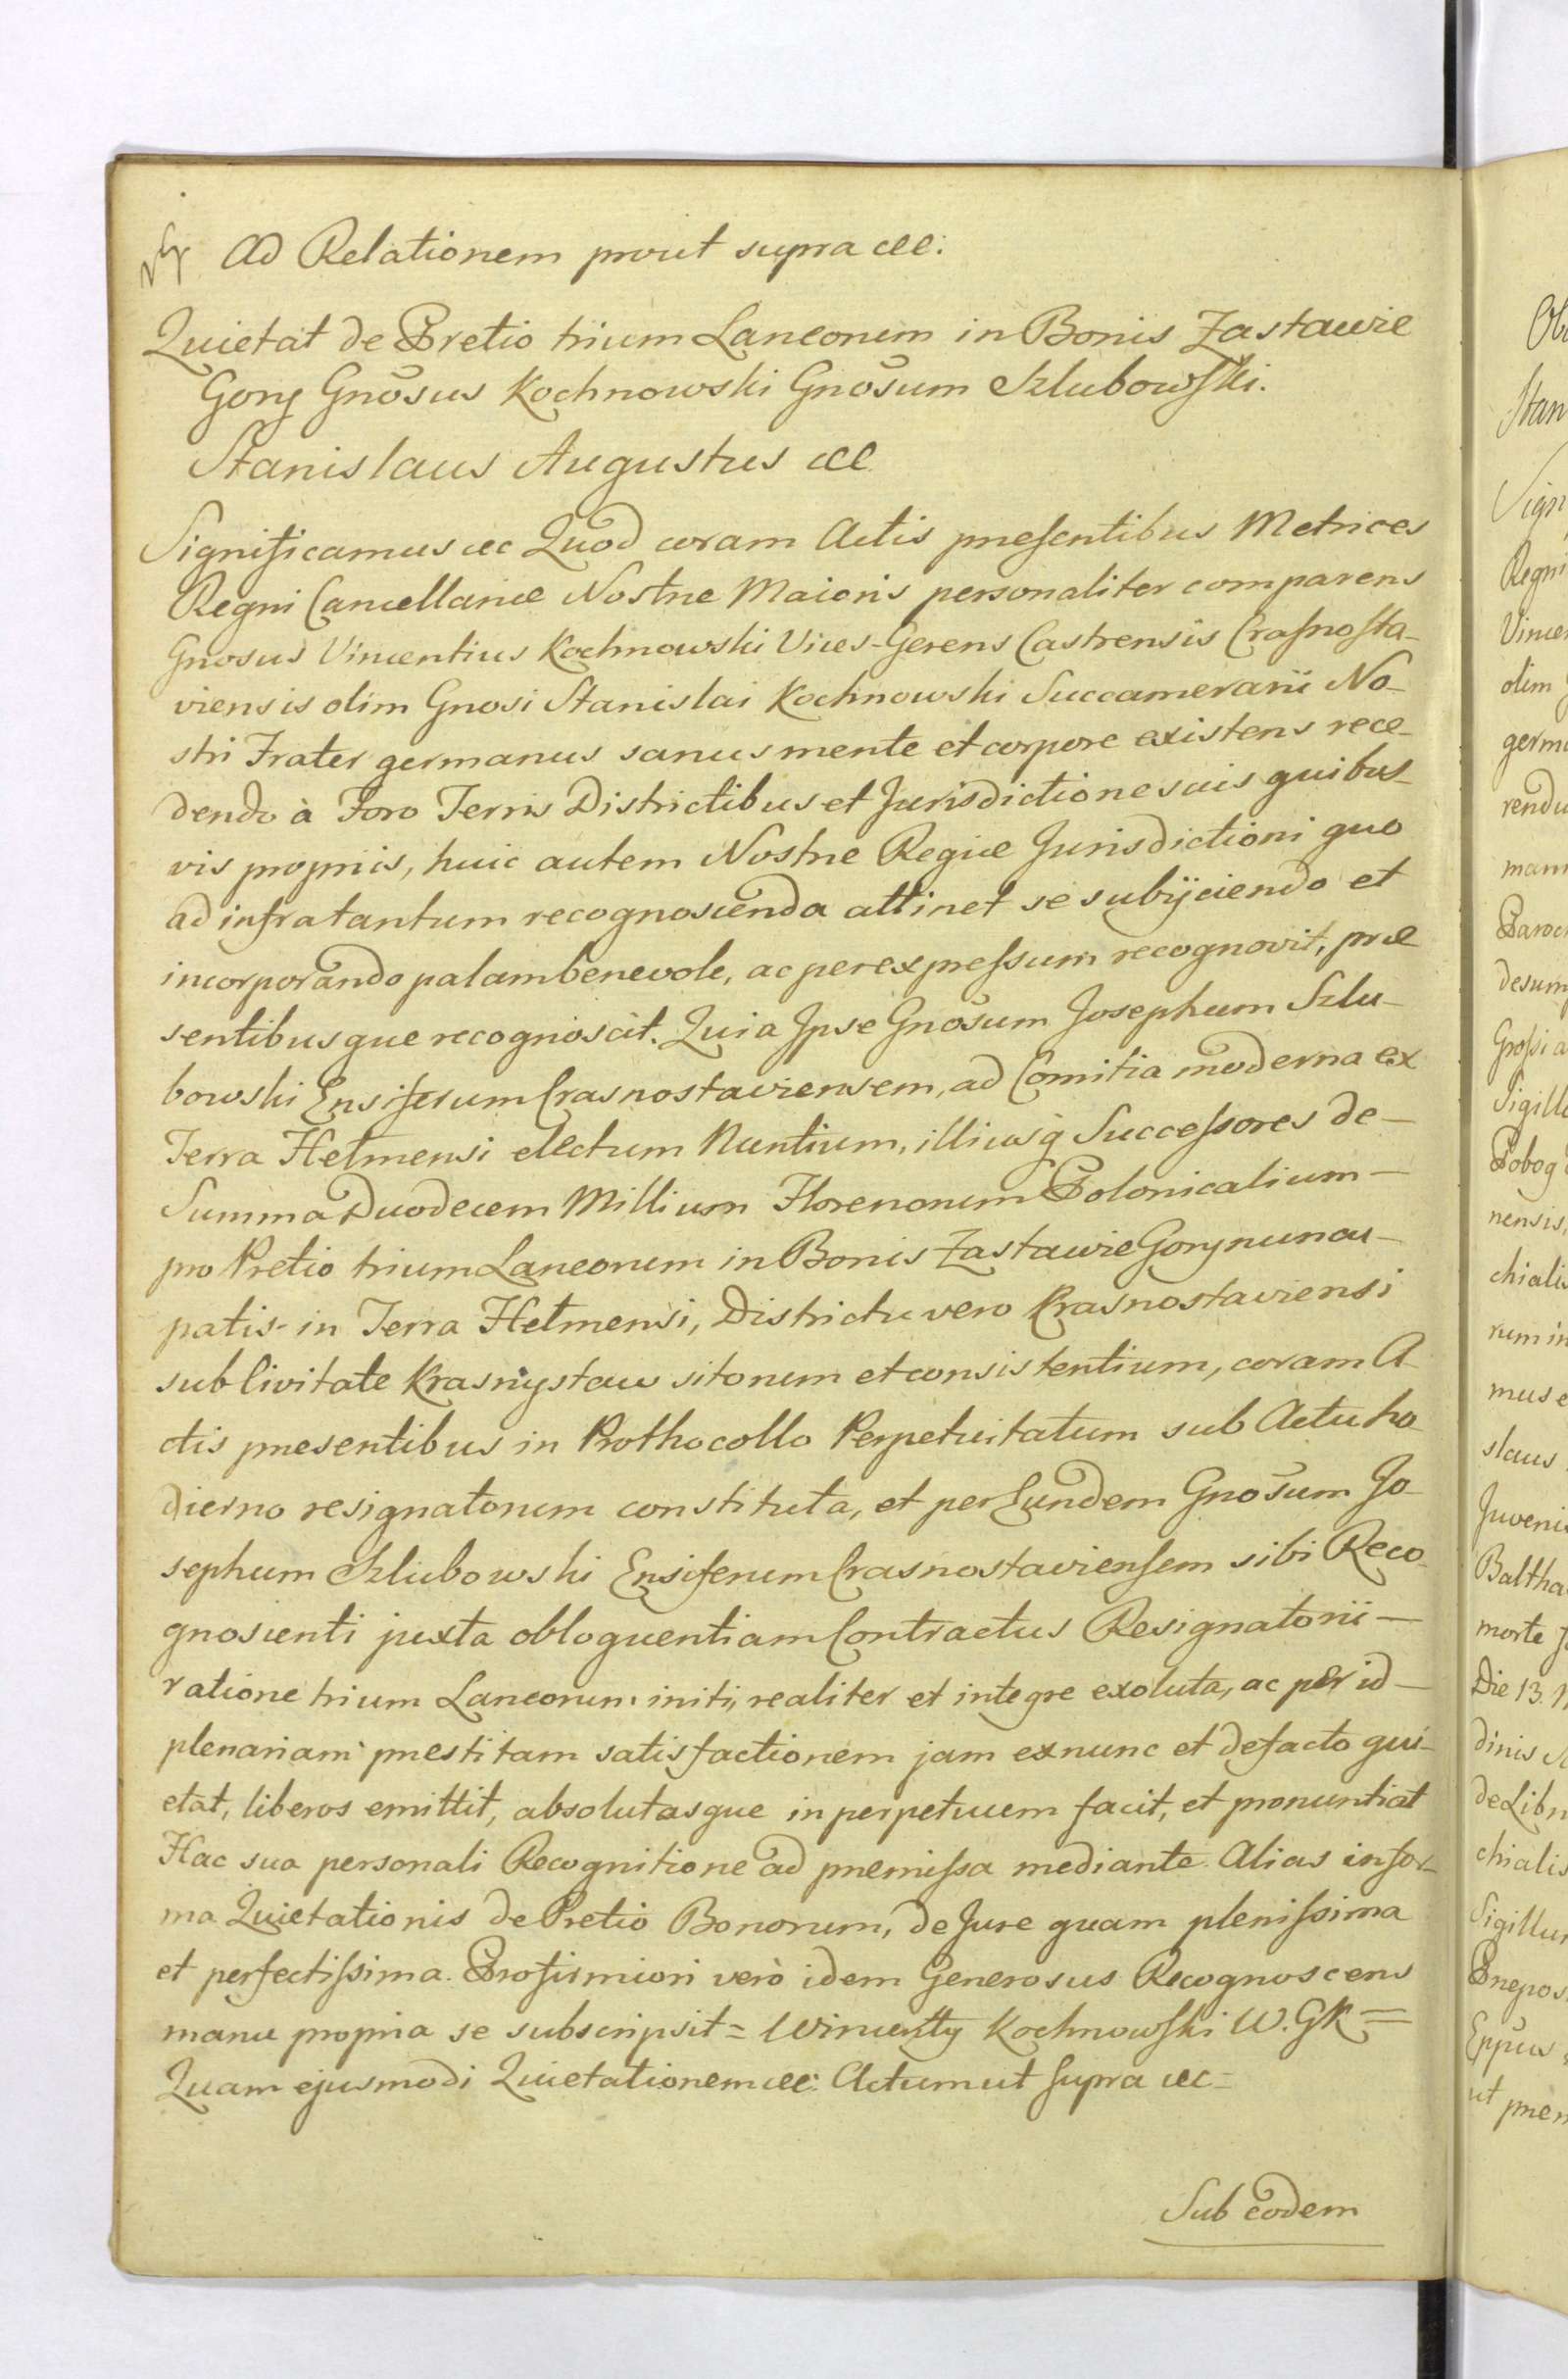 Ad Relationem prout supra etc:
Quietat de Pretio trium Laneorum in Bonis Zastawie
Gory Gnosus Kochnowski Gnosum Szlubowski.
Stanislaus Augustus etc
Significamus etc Quod coram Actis præsentibus Metrices
Regni Cancellariæ Nostræ Maioris personaliter comparens
Gnosus Vincentius Kochnowski Vices-Gerens Castrensis Crasnosta-
viensis olim Gnosi Stanislai Kochnowski Succamerarii No-
stri Frater germanus sanus mente et corpore existens rece-
dendo à Foro Terris Districtibus et Jurisdictione suis quibus-
vis propriis, huic autem Nostræ Regiæ Jurisdictioni quo
ad infra tantum recognoscenda attinet se subijciendo et
incorporando palam benevole, ac per expressum recognovit, præ
sentibusque recognoscit. Quia Ipse Gnosum Josephum Szlu-
bowski Ensiferum Crasnostaviensem, ad Comitia moderna ex
Terra Helmensi electum Nuntium, illiusq Successores de-
Summa Duodecem Millium Florenorum Polonicalium-
pro Pretio trium Laneorum in Bonis Zastawie Gory nuncu-
patis in Terra Helmensi, Districtu vero Krasnostaviensi
sub Civitate Krasnystaw sitorum et consistentium, coram A-
ctis præsentibus in Prothocollo Perpetuitatum sub Actu ho
dierno resignatorum constituta, et per Eundem Gnosum Jo-
sephum Szlubowski Ensiferum Crasnostaviensem sibi Reco-
gnoscenti juxta obloquentiam Contractus Resignatorii-
ratione trium Laneorum initi, realiter et integre exoluta, ac per id-
plenariam præstitam satisfactionem jam exnunc et defacto qui-
etat, liberos emittit, absolutasque in perpetuum facit, et pronuntiat
Hac sua personali Recognitione ad præmissa mediante. Alias in for-
ma Quietationis de Pretio Bonorum, de Jure quam plenissima
et perfectissima. Profirmiori verò idem Generosus Recognoscens
manu propria se subscripsit = Wincenty Kochnowski W. G K =
Quam ejusmodi Quietationem etc: Actum ut supra etc-
Sub eodem